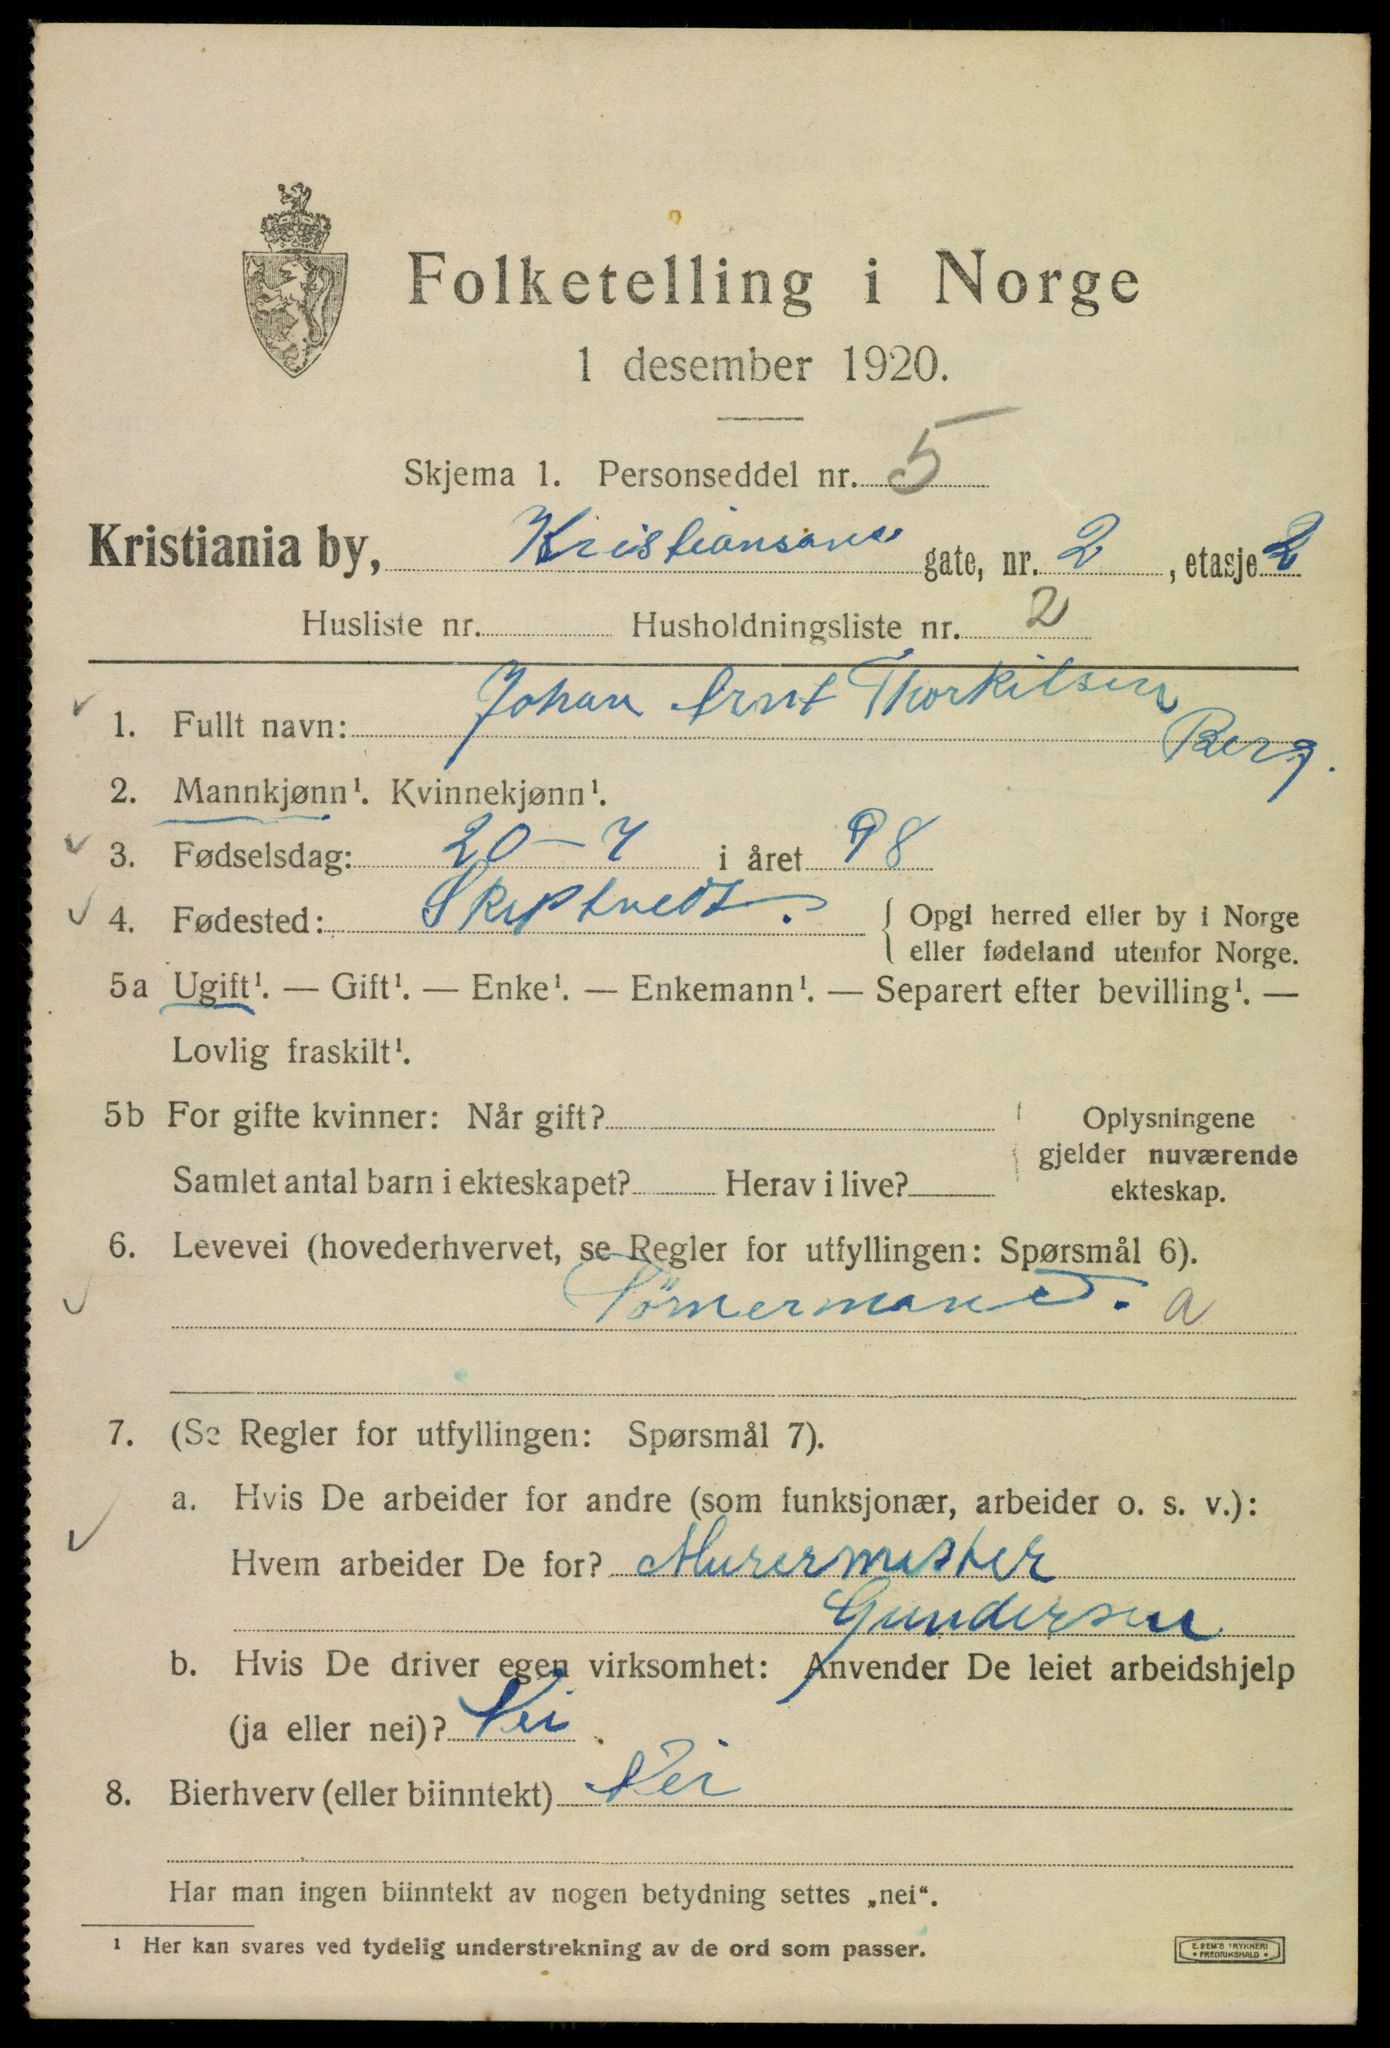 Folketelling i Norge
1 desember 1920.
Skjema 1. Personseddel nr. 5
Kristiania by, Kristiansans gate, nr. 2, etasje 2
Husliste nr. Husholdningsliste nr. 2
1. Fullt navn: Johan Arnt Thorkilsen
Berg.
2. Mannkjønn¹. Kvinnekjønn¹.
3. Fødselsdag: 20-7 i året 98
4. Fødested: Skiptvedt. { Opgi herred eller by i Norge
eller fødeland utenfor Norge.
5a Ugift¹. — Gift¹. — Enke¹. — Enkemann¹. — Separert efter bevilling¹. —
Lovlig fraskilt¹.
5b For gifte kvinner: Når gift? Oplysningene
gjelder nuværende
Samlet antal barn i ekteskapet? Herav i live? ekteskap.
6. Levevei (hovederhvervet, se Regler for utfyllingen: Spørsmål 6).
Tömermand. a
7. (Se Regler for utfyllingen: Spørsmål 7).
a. Hvis De arbeider for andre (som funksjonær, arbeider o. s. v.):
Hvem arbeider De for? Murermester
Gundersen
b. Hvis De driver egen virksomhet: Anvender De leiet arbeidshjelp
(ja eller nei)? Nei
8. Bierhverv (eller biinntekt) Nei
Har man ingen biinntekt av nogen betydning settes „nei“.
¹ Her kan svares ved tydelig understrekning av de ord som passer.
E. SEM'S TRYKKERI
* FREDRIKSHALD *